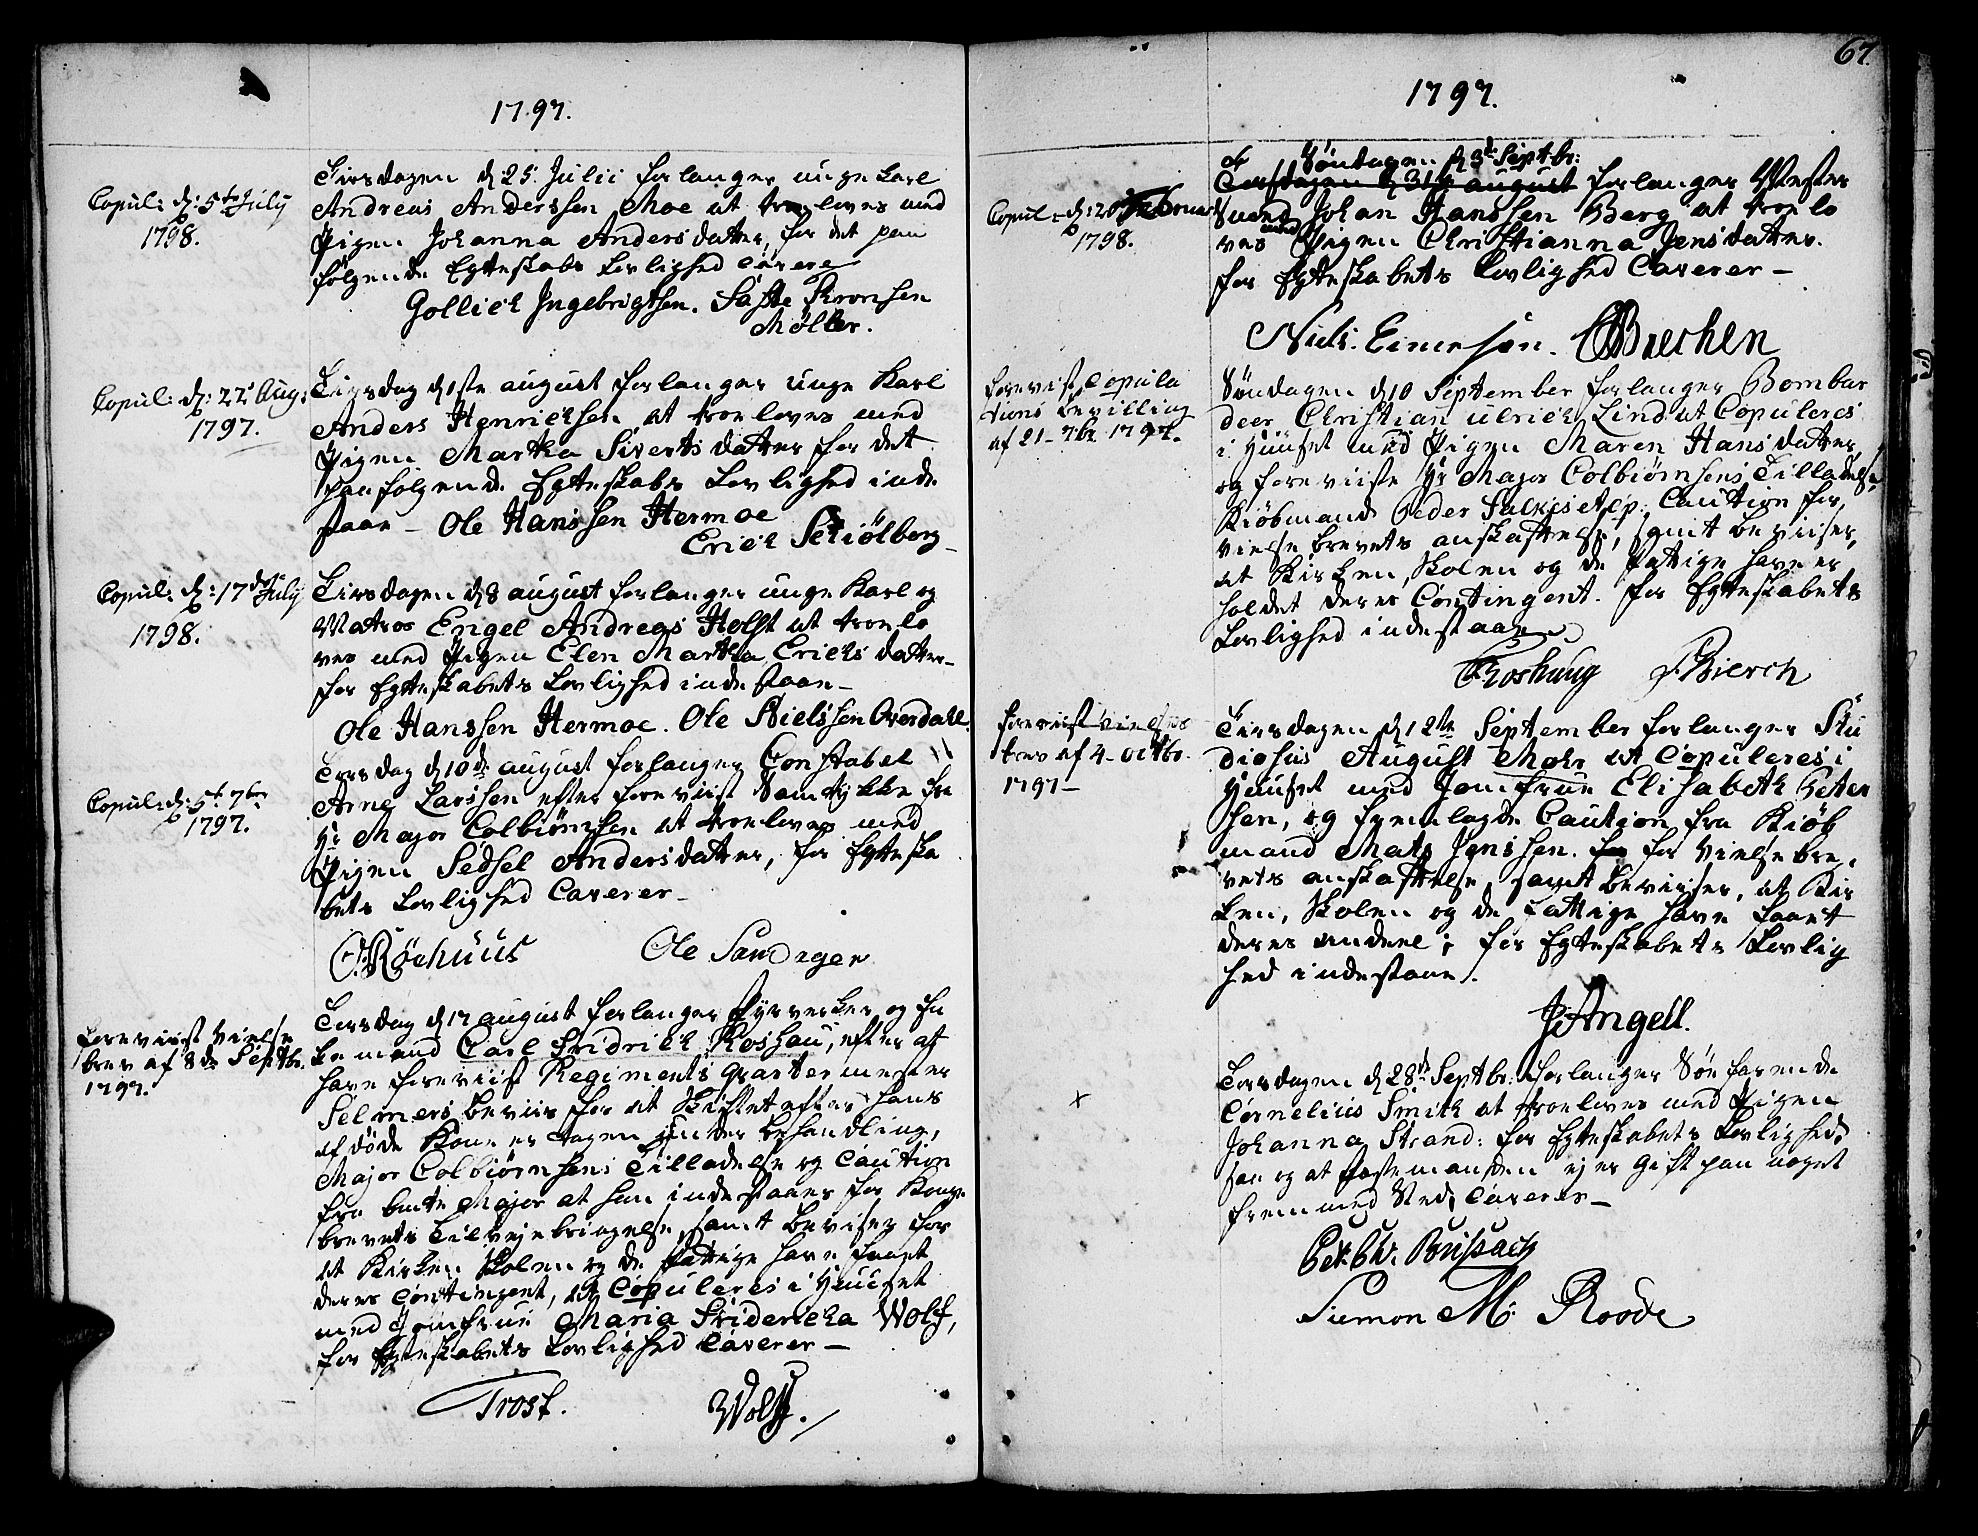 1797.
Copul: d: 5te July
1798.
Tirsdagen d 25. Julii forlanger unge Karl
Andreas Anderssen Moe at troeloves med
Pigen Johanna Andersdatter, for det paa
følgende Egteskabs Lovlighed cavere
Gollich Ingebrigtsen.
Møller.
Copul: d: 22 Aug:
1797.
Tirsdag d 1ste august forlanger unge Karl
Anders Henrichsen at troeloves med
Pigen Martha Sivertsdatter for det
paafølgende Egteskabs Lovlighed inde
staae – Ole Hanssen Hermoe
Erich Schiölberg
Copul: d: 17de July
1798.
Tirsdagen d 8 august forlanger unge Karl og
Matros Engel Andreas Holst at troelo
ves med Pigen Elen Martha Erichsdatter –
for Egteskabets Lovlighed indestaae –
Ole Hanssen Hermoe. Ole Nielssen Overdahl
Copul: d: 5t 7br
1797.
Torsdag d 10de august forlanger Constabel
Arne Larssen efter foreviist Samtykke fra
Hr Major Colbiörnsen at troeloves med
Pigen Sedsel Andersdatter, for Egteska
bets Lovlighed Caverer –
Ole Sandager
Foreviist Vielse
brev af 8de Septbr.
1797.
Torsdag d 17 august forlanger Fyrverker og En
kemand Carl Fridrich Roshau, efter at
have foreviist Regiments Qvartermester
Selmers beviis for at Skiftet efter hans
afdöde Kone er tagen under behandling,
Major Colbiörnsens Tilladelse og Caution
fra bmte Major at han indestaaer for Konge
brevets Tilvejebringelse, samt beviser for
at Kirken Skolen og de Fattige have faaet
deres Contingent, at Copuleres i Huuset
med Jomfrue Maria Fridericha Wolf,
for Egteskabets Lovlighed Caverer –
Trost. Wolff.
67.
1797.
Copul: d: 20 Februar
1798.
Söndagen d 3de Septbr:
Torsdagen d 31te august forlanger Mester
Svend Johan Hanssen Berg at troelo
ves med Pigen Christianna Jensdatter.
for Egteskabets Lovlighed Caverer –
Niels Einersen.
Foreviist Copula
tions Bevilling
af 21– 7br 1797.
Söndagen d 10 September forlanger Bombar
deer Christian Ulrich Lind at Copuleres
i Huuset med Pigen Maren Hansdatter,
og foreviiste Hr Major Colbiörnsens Tilladelse,
Kiöbmand Peder Caution for
vielsebrevets anskaffelse, samt beviiser,
at Kirken, Skolen og de Fattige have er
holdet deres Contingent. for Egteskabets
Lovlighed indestaae
Foreviist vielses
brev af 4– Octbr.
1797–
Tirsdagen d 12te September forlanger Stu
diosus August Mohr at Copuleres i
Huuset med Jomfrue Elisabeth Peter
sen, og fremlagde Caution fra Kiöb
mand Mats Jenssen. for Vielsebre
vets anskaffelse, samt beviiser, at Kir
ken, Skolen og de Fattige have faaet
deres andeel; for Egteskabets Lovlig
hed indestaae.
J Angell.
x
Torsdagen d 28de Septbr: forlanger Söefarende
Cornelius Smith at troeloves med Pigen
Johanna Strand: for Egteskabets Lovlighed,
saa og at Fæstemanden ej er Gift paa noget
fremmed Sted, Caverer –
Siemon M: Roode